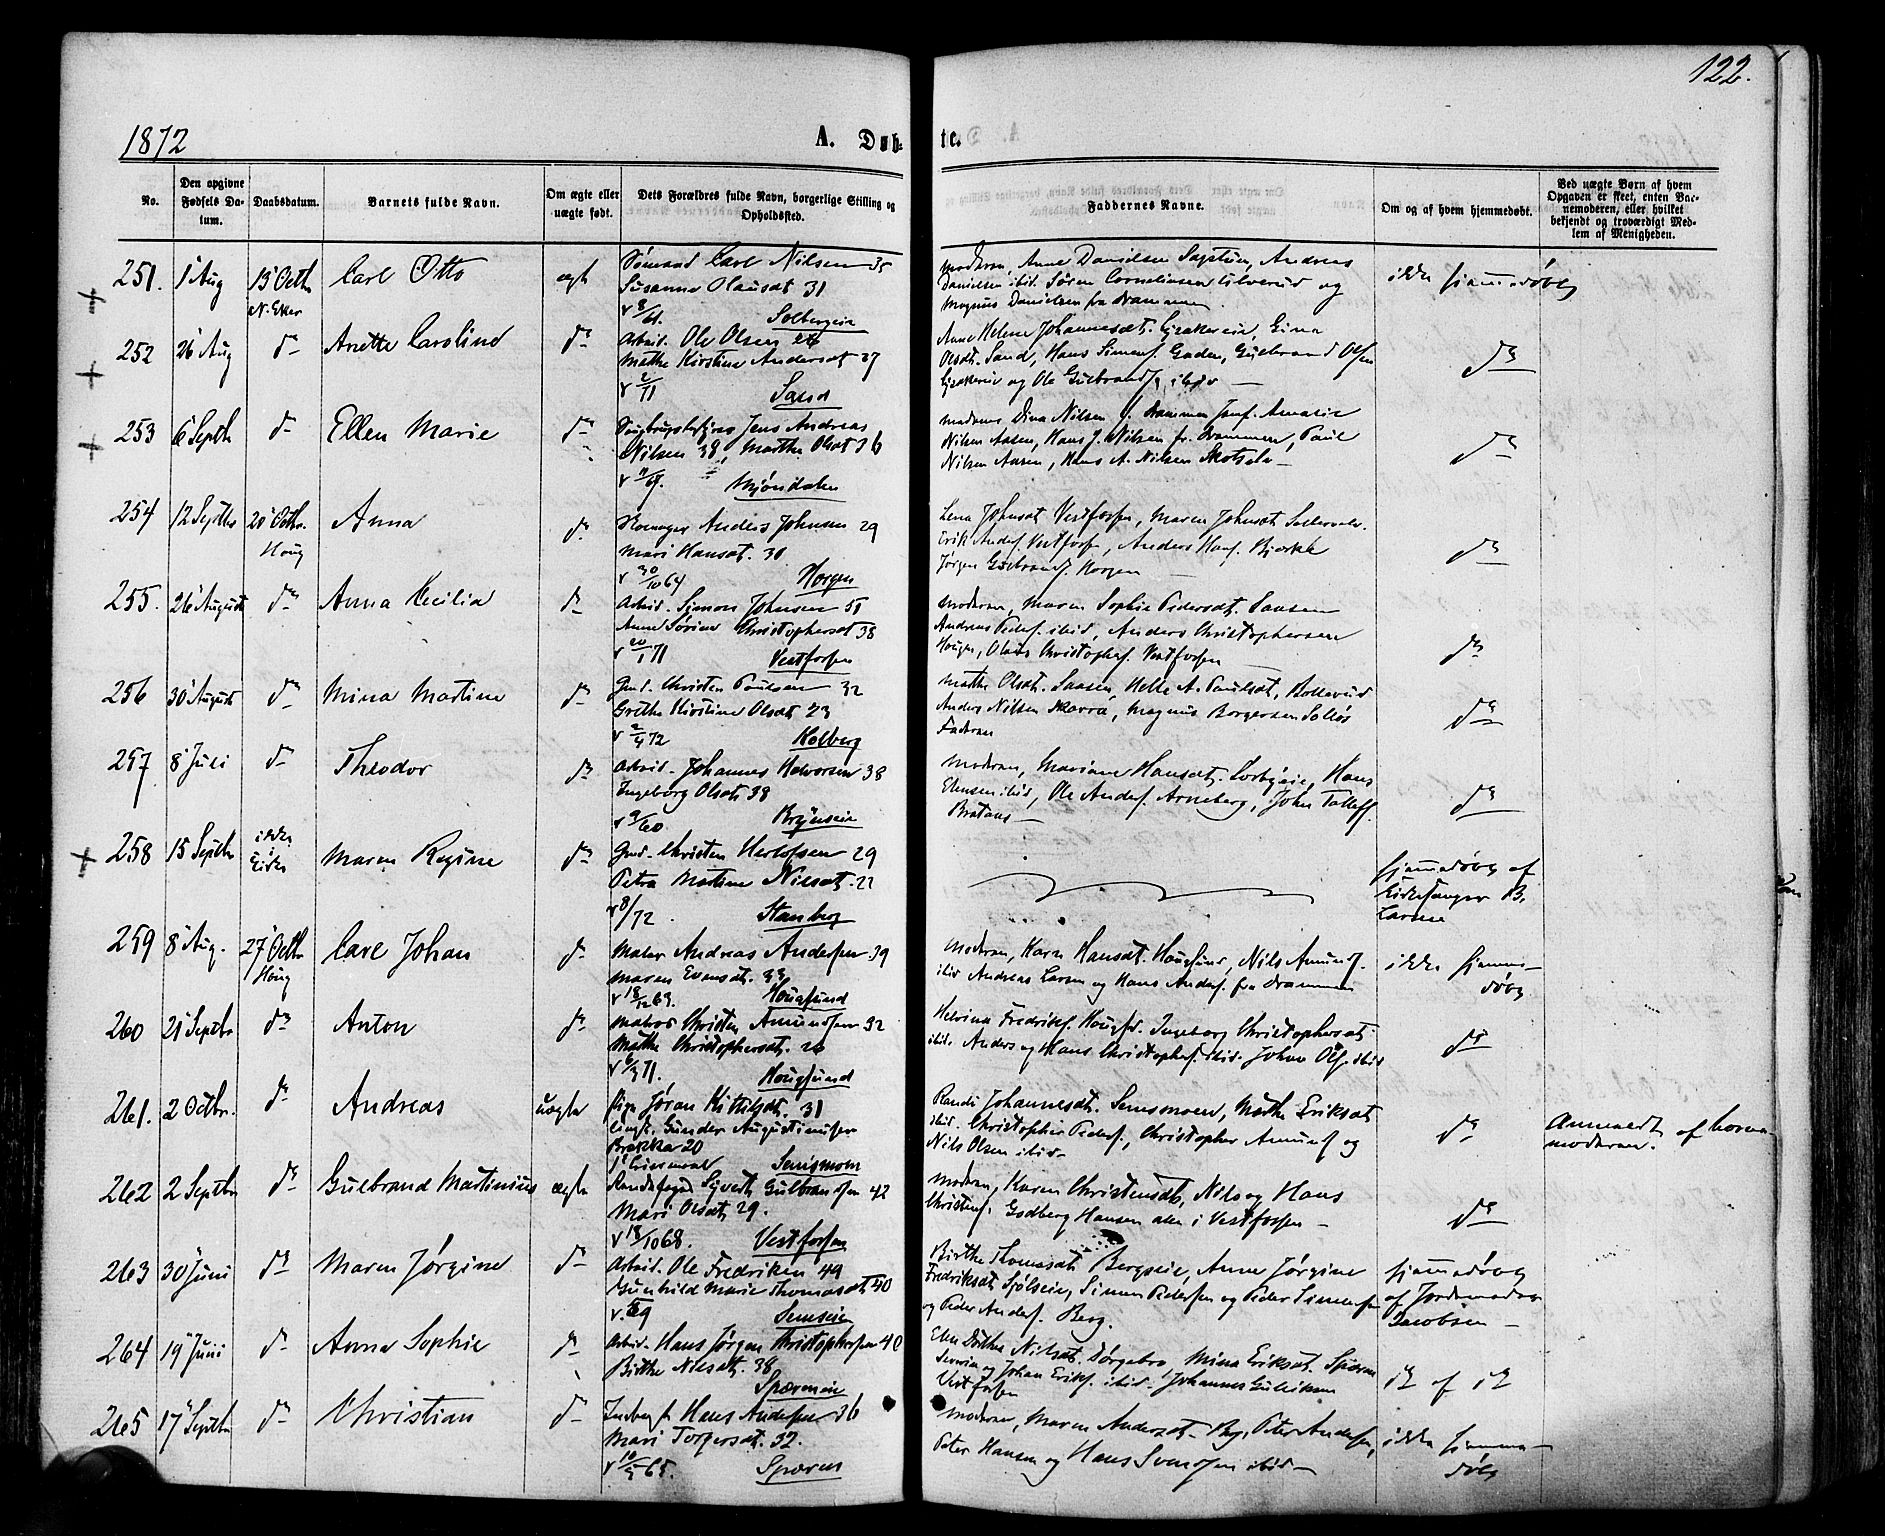 122.
1872
A. Døb-
te.
No.
Den opgivne Fødsels Da-tum.
Daabsdatum.
Barnets fulde Navn.
Om ægte eller uægte født.
Dets Forældres fulde Navn, borgerlige Stilling og Opholdssted.
Faddernes Navne.
Om og af hvem hjemmedøbt.
Ved uægte Børn af hvem Opgaven er skeet, enten Bar-nemoderen, eller hvilket bekjendt og troværdigt Med-lem af Menigheden.
251. 1 Aug 13 Octb Carl Otto ægt Sømand Carl Nilsen 35
N. Eker Susanne Olausdt 31
Solbergeie
Moderen, Anne Danielsen, Andreas
Danielsen ibid. Søren Corneliusen Ulverud og
Magnus Danielsen fra Drammen
ikke hjemmedøbt
252 26 Aug do Anette Caroline do Arbeid. Ole Olsen 26
Mathe Kirstine Andersdt 37
v 2/11 Sand
Anne Helene Johannesdt. Gina
Olsdt. Sand, Hans Simens. Gulbrand Olsen
og Ole Gulbrands. ibid
do
253 6 Septbr do Ellen Marie do Jens Andreas
Nilsen 38, Marthe Olsdt 36
Mjøndalen
Dina Nilsen f. Drammen Jomf. Amalie
Nilsen Aasen, Hans J. Nilsen fr. Drammen, Paul
Nilsen Aasen, Hans A. Nilsen Skotselv
do
254 12 Septbr 20 Octbr. Anna do Anders Johnsen 29
Houg Mari Hansdt. 30
v 30/10 64 Horgen
Lena Johnsdt Vestfossen, Maren Johnsdt
Erik Anders. Vestfossen, Anders Hans. Bjerke
Jørgen Gulbrands. Horgen
do
255. 26 August do Anna Cecilia do Arbeid. Simon Johnsen 51
Anne Sørine Christophersdt 38
v 20/1 71 Vestfossen
Moderen, Maren Sophie Pedersdt. Saasen
Andreas Peders. ibid, Anders Christophersen
Hougen, Olaus Christophs. Vestfossen
do
256 30 August do Mina Martine do Gmd. Christen Poulsen 32
Grethe Kirstine Olsdt 23
v 2/4 72 Kolberg
Mathe Olsdt. Saasen, Helle A. Paulsdt,
Anders Nilsen Skarra, Magnus Borgersen
Faderen
do
257 8 Juli do Theodor do Arbeid. Johannes Halvorsen 38
Ingeborg Olsdt 38
v 9/60 Brynseie
Moderen, Mariane Hansdt. Hans
ibid, Ole Anders. Arneberg, John Tollefs.
Brataas
do
258 15 Septbr ikke i Kirke Maren Regine do Gmd. Christen Herlofsen 29
Petra Martine Nilsdt. 22
v 8/72 Stenberg
hjemmedøbt af
Kirkesanger B.
Larsen
259 8 Aug. 27 Octbr Carl Johan do Maler Andreas Andersen 39
Houg Maren Evensdt. 33
v 18/12 63. Hougsund
Moderen, Karn Hansdt. Hougsund, Nils Amunds.
ibid Andreas Larsen og Hans Anders. fra Drammen
ikke hjemme-
døbt
260 21 Septbr do Anton do Matros Christen Amundsen 32
Mathe Christophersdt. 26
v 6/3 71. Hougsund
Helvina Fredriks. Hougsd. Ingeborg Christophersdt
ibid. Anders og Hans Christophs. ibid. Johan Ols. ibid
do
261. 2 Octbr. do Andreas uægte Pige Jøran Kittilsdt. 31
Ungk. Gunder Augustinussen
Brekke 20
Semsmoen
Randi Johannesdt. Semsmoen, Mathe Eriksdt
ibid. Christopher Peders., Christopher Amunds og
Nils Olsen ibid
do
Anmeldt af barne-
moderen.
262 2 Septbr do Gulbrand Martinius ægte Sivert Gulbrandsen 42
Mari Olsdt. 29.
v 18/10 68. Vestfossen
Moderen, Karen Christensdt, Nils og Hans
Christens. Godberg Hansen alle i Vestfossen
do
263 30 Juni do Maren Jørgine do Arbeid. Ole Fredriksen 49
Gunhild Marie Thomasdt 40
Semseie
Birthe Thomasdt Bergseie, Anne Jørgine
Fredriksdt Sjølseie, Simen Pedersen og Peder Simensen
og Peder Anders. Berg.
hjemmedøbt
af Jordemoder
Jacobsen
264 19 Juni do Anna Sophie do Arbeid. Hans Jørgen Christophersen 40
Birthe Nilsdt. 38
Elen Dorthea Nilsdt. Dørgebro, Mina Eriksdt.
Severin og Johan Eriks. ibid. Johannes Gulliksen
Vestfossen
id af id
265 17 Septbr do Christian do Hans Andersen 36
Mari Torgersdt. 32.
v 10/5 65. Speren
Moderen, Maren Andersdt. By, Peter Andersen,
Peter Hansen og Hans Svendsen ibid
ikke hjemme-
døbt